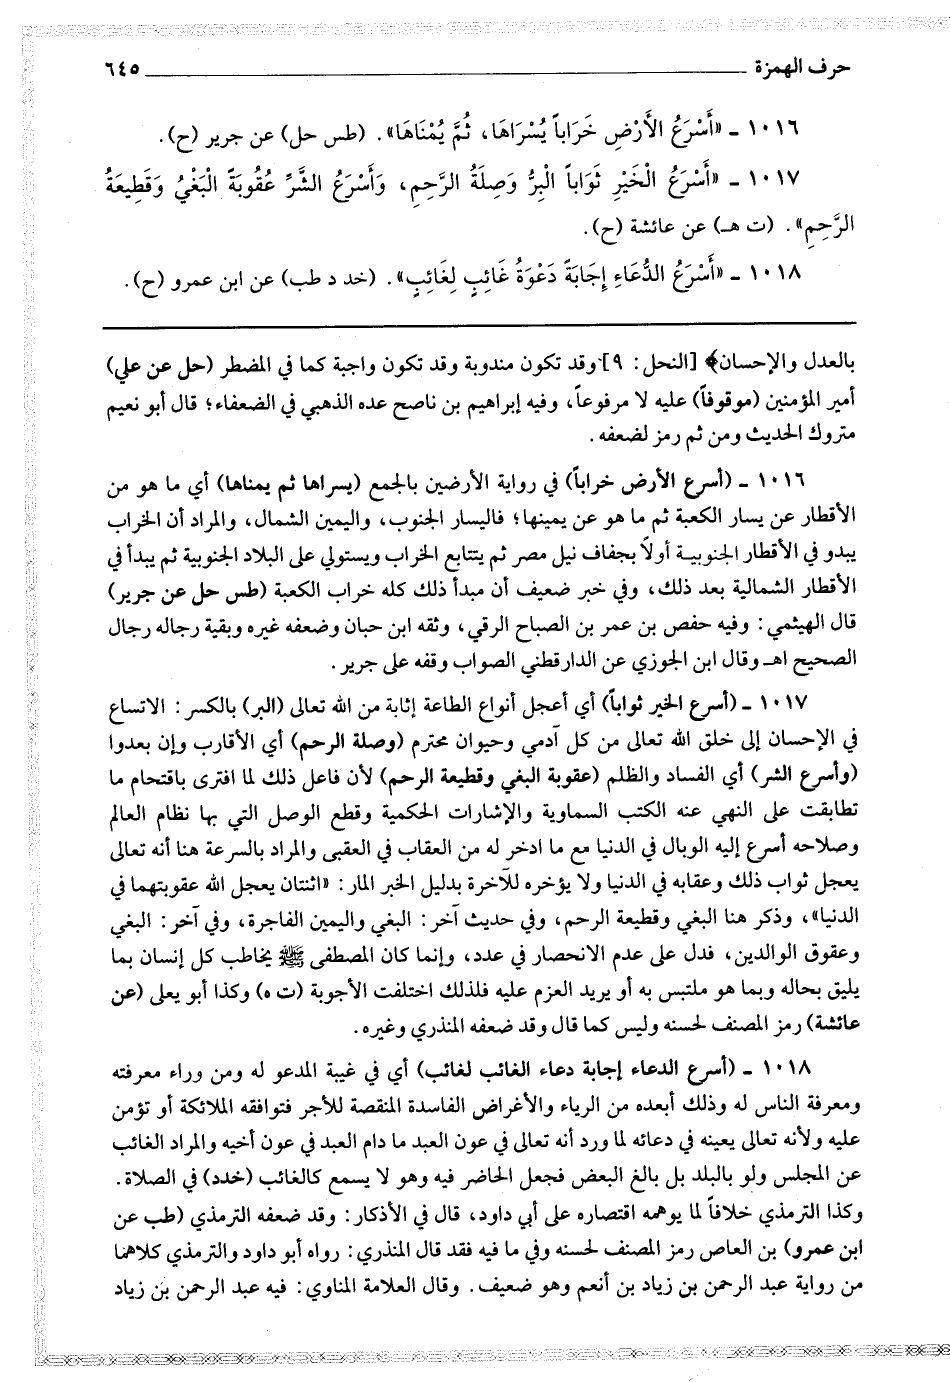 حرف الهمزة ٦٤٥
١٠١٦ ـ «أَسْرَعُ الأَرْضِ خَرَاباً يُسْرَاهَا، ثُمَّ يُمْنَاهَا». (طس حل) عن جرير (ح).
١٠١٧ ـ «أَسْرَعُ الْخَيْرِ ثَوَاباً الْبِرُّ وَصِلَةُ الرَّحِمِ، وَأَسْرَعُ الشَّرِّ عُقُوبَةً الْبَغْيُ وَقَطِيعَةُ
الرَّحِمِ». (ت هـ) عن عائشة (ح).
١٠١٨ ـ «أَسْرَعُ الدُّعَاءِ إِجَابَةً دَعْوَةُ غَائِبٍ لِغَائِبٍ». (خد د طب) عن ابن عمرو (ح).
بالعدل والإحسان﴾ [النحل: ٩] وقد تكون مندوبة وقد تكون واجبة كما في المضطر (حل عن علي)
أمير المؤمنين (موقوفاً) عليه لا مرفوعاً، وفيه إبراهيم بن ناصح عده الذهبي في الضعفاء؛ قال أبو نعيم
متروك الحديث ومن ثم رمز لضعفه.
١٠١٦ ـ (أسرع الأرض خراباً) في رواية الأرضين بالجمع (يسراها ثم يمناها) أي ما هو من
الأقطار عن يسار الكعبة ثم ما هو عن يمينها؛ فاليسار الجنوب، واليمين الشمال، والمراد أن الخراب
يبدو في الأقطار الجنوبية أولاً بجفاف نيل مصر ثم يتتابع الخراب ويستولي على البلاد الجنوبية ثم يبدأ في
الأقطار الشمالية بعد ذلك، وفي خبر ضعيف أن مبدأ ذلك كله خراب الكعبة (طس حل عن جرير)
قال الهيثمي: وفيه حفص بن عمر بن الصباح الرقي، وثقه ابن حبان وضعفه غيره وبقية رجاله رجال
الصحيح اهـ وقال ابن الجوزي عن الدارقطني الصواب وقفه على جرير.
١٠١٧ ـ (أسرع الخير ثواباً) أي أعجل أنواع الطاعة إثابة من الله تعالى (البر) بالكسر: الاتساع
في الإحسان إلى خلق الله تعالى من كل آدمي وحيوان محترم (وصلة الرحم) أي الأقارب وإن بعدوا
(وأسرع الشر) أي الفساد والظلم (عقوبة البغي وقطيعة الرحم) لأن فاعل ذلك لما افترى باقتحام ما
تطابقت على النهي عنه الكتب السماوية والإشارات الحكمية وقطع الوصل التي بها نظام العالم
وصلاحه أسرع إليه الوبال في الدنيا مع ما ادخر له من العقاب في العقبى والمراد بالسرعة هنا أنه تعالى
يعجل ثواب ذلك وعقابه في الدنيا ولا يؤخره للآخرة بدليل الخبر المار: «اثنتان يعجل الله عقوبتهما في
الدنيا»، وذكر هنا البغي وقطيعة الرحم، وفي حديث آخر: البغي واليمين الفاجرة، وفي آخر: البغي
وعقوق الوالدين، فدل على عدم الانحصار في عدد، وإنما كان المصطفى ﷺ يخاطب كل إنسان بما
يليق بحاله وبما هو ملتبس به أو يريد العزم عليه فلذلك اختلفت الأجوبة (ت ه) وكذا أبو يعلى (عن
عائشة) رمز المصنف لحسنه وليس كما قال وقد ضعفه المنذري وغيره.
١٠١٨ ـ (أسرع الدعاء إجابة دعاء الغائب لغائب) أي في غيبة المدعو له ومن وراء معرفته
ومعرفة الناس له وذلك أبعده من الرياء والأغراض الفاسدة المنقصة للأجر فتوافقه الملائكة أو تؤمن
عليه ولأنه تعالى يعينه في دعائه لما ورد أنه تعالى في عون العبد ما دام العبد في عون أخيه والمراد الغائب
عن المجلس ولو بالبلد بل بالغ البعض فجعل الحاضر فيه وهو لا يسمع كالغائب (خدد) في الصلاة.
وكذا الترمذي خلافاً لما يوهمه اقتصاره على أبي داود، قال في الأذكار: وقد ضعفه الترمذي (طب عن
ابن عمرو) بن العاص رمز المصنف لحسنه وفي ما فيه فقد قال المنذري: رواه أبو داود والترمذي كلاهما
من رواية عبد الرحمن بن زياد بن أنعم وهو ضعيف. وقال العلامة المناوي: فيه عبد الرحمن بن زياد